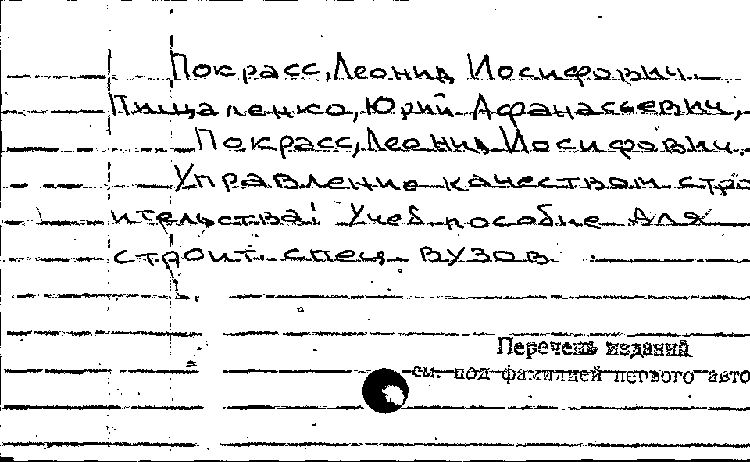 Покрасс, Леонид Иосифович.
Пищаленко, Юрий Афанасьевич,
Покрасс, Леонид Иосифович.
Управление качеством стро
ительства: Учеб. пособие для
строит. спец. вузов.
Перечень изданий
см. под фамилией первого авто